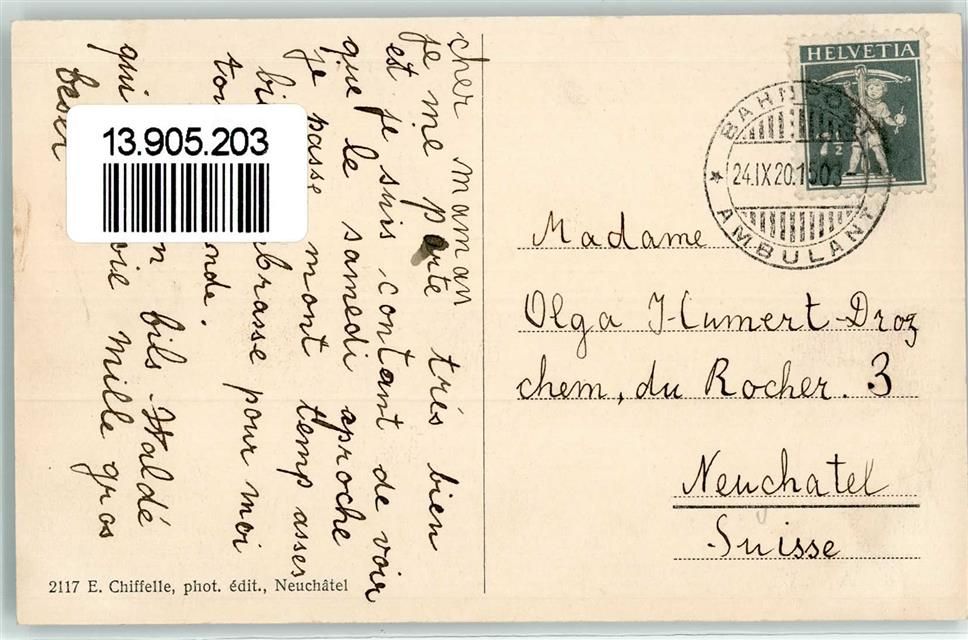 cher maman
je me porte très bien
est je suis contant de voir
que le samedi aproche
je passe mont temp asses
bi brasse pour moi
tou onde.
n bils Waldé
qui oie mille gros
beser
13.905.203
HELVETIA
7 1/2
BAHNPOST
24.IX.20.1503
AMBULANT
Madame
Olga Humert-Droz
chem, du Rocher. 3
Neuchatel
Suisse
2117 E. Chiffelle, phot. édit., Neuchâtel